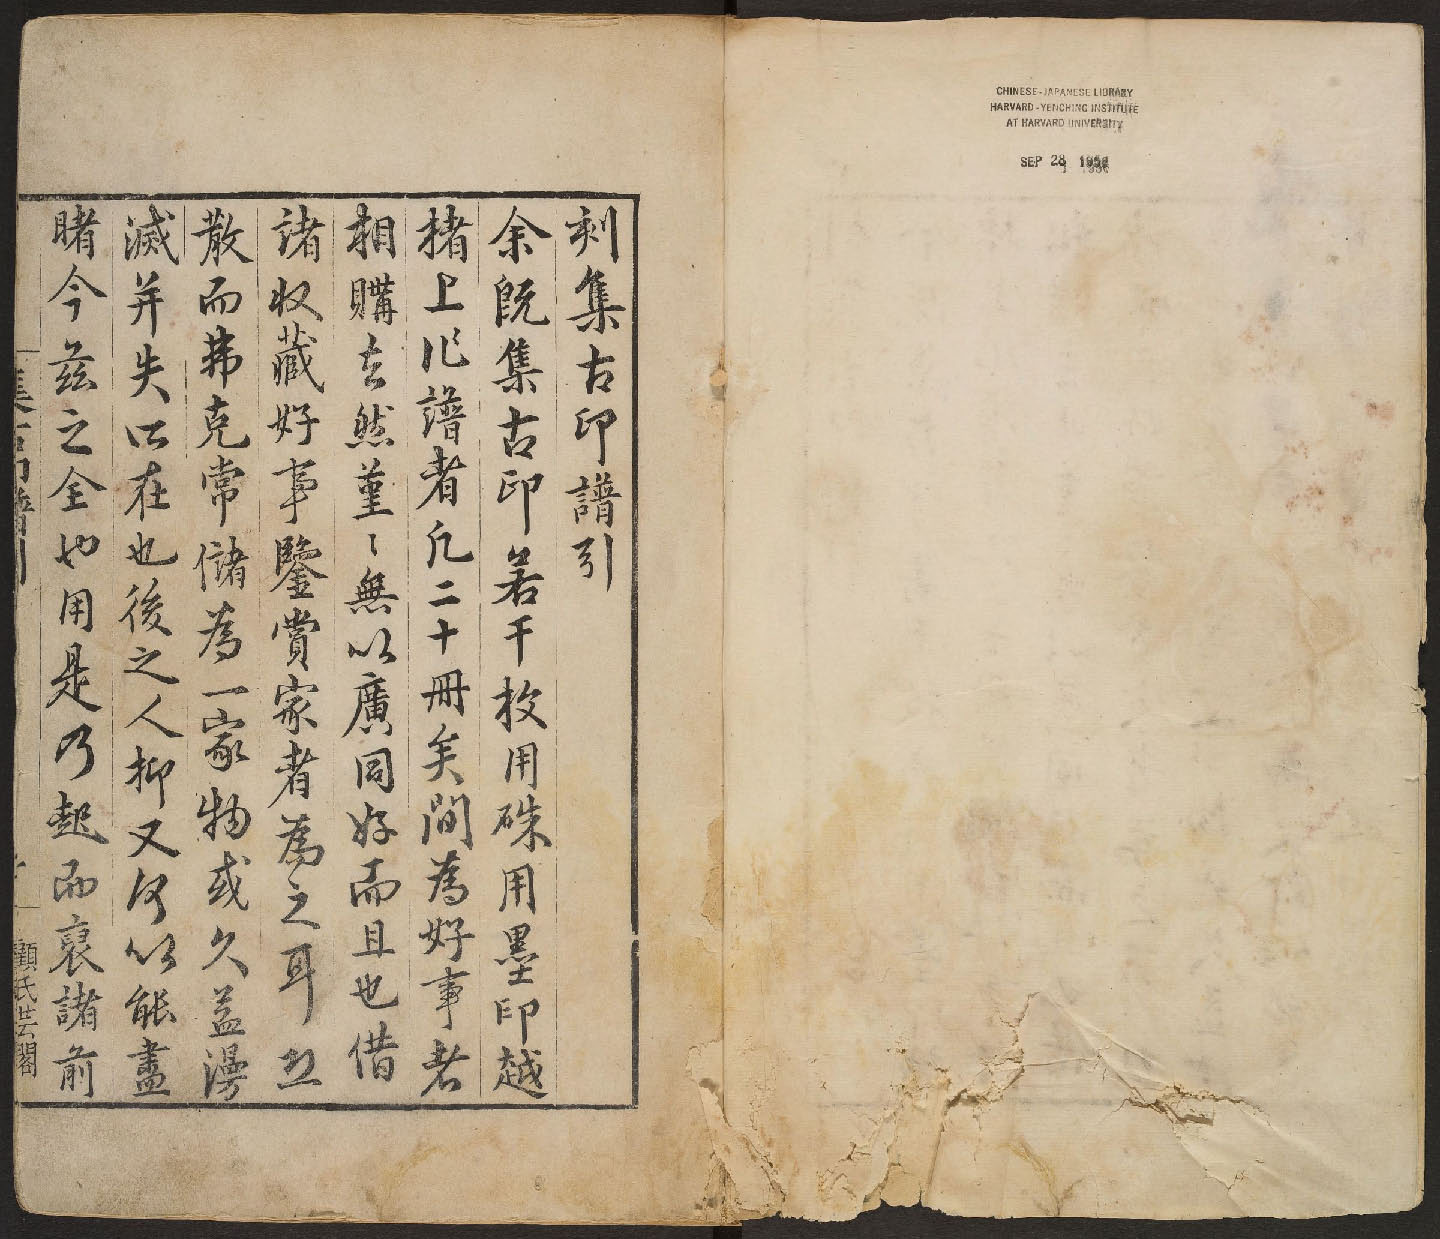 CHINESE-JAPANESE LIBRARY
HARVARD-YENCHING INSTITUTE
AT HARVARD UNIVERSITY
SEP 28
刻集古印譜引
余既集古印若干枚用硃用墨印越
楮上作譜者凡二十冊矣間為好事者
相購去然堇〻無以廣同好而且也借
諸收藏好事鑒賞家者為之耳
散而弗克常儲為一家物或久益漫
滅并失所在也後之人抑又何以能盡
睹今茲之全也用是乃起而裒諸前
集古印譜引
顧氏芸閣